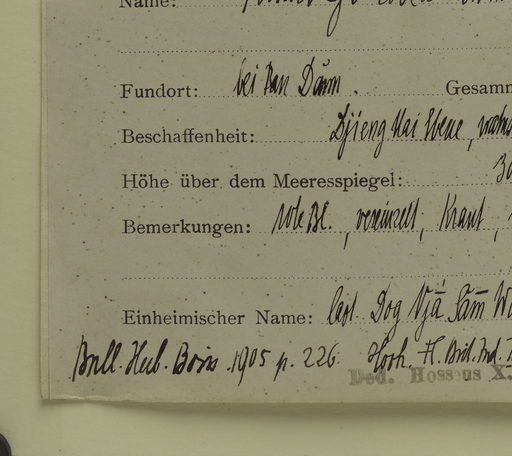 Name:
Fundort: bei Ban Dăm. Gesamm
Beschaffenheit: Djieng Hai Ebene,
Höhe über dem Meeresspiegel: 30
Bemerkungen: rote Bl., vereinzelt, Kraut,
Einheimischer Name: laot. Dog
Bull. Herb. Boiss. 1905 p. 226. Hook. Fl. Brit. Ind.
Ded. Hosseus X.